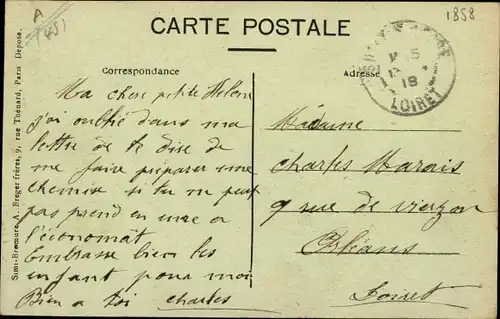 A
(45)
1858
CARTE POSTALE
Correspondance
Adresse
Ma chere petite Helene
j'ai oublié dans ma
lettre de te dire de
me faire préparer une
chemise si tu ne peut
pas prend en une a
l'économat
Embrasse bien les
enfant pour moi
Bien a toi Charles
Madame
Charles Marais
9 rue de vierzon
Orléans
Loiret
15
18
LOIRET
Simi-Bromure A. Breger frères, 9, rue Thénard, Paris Déposé.